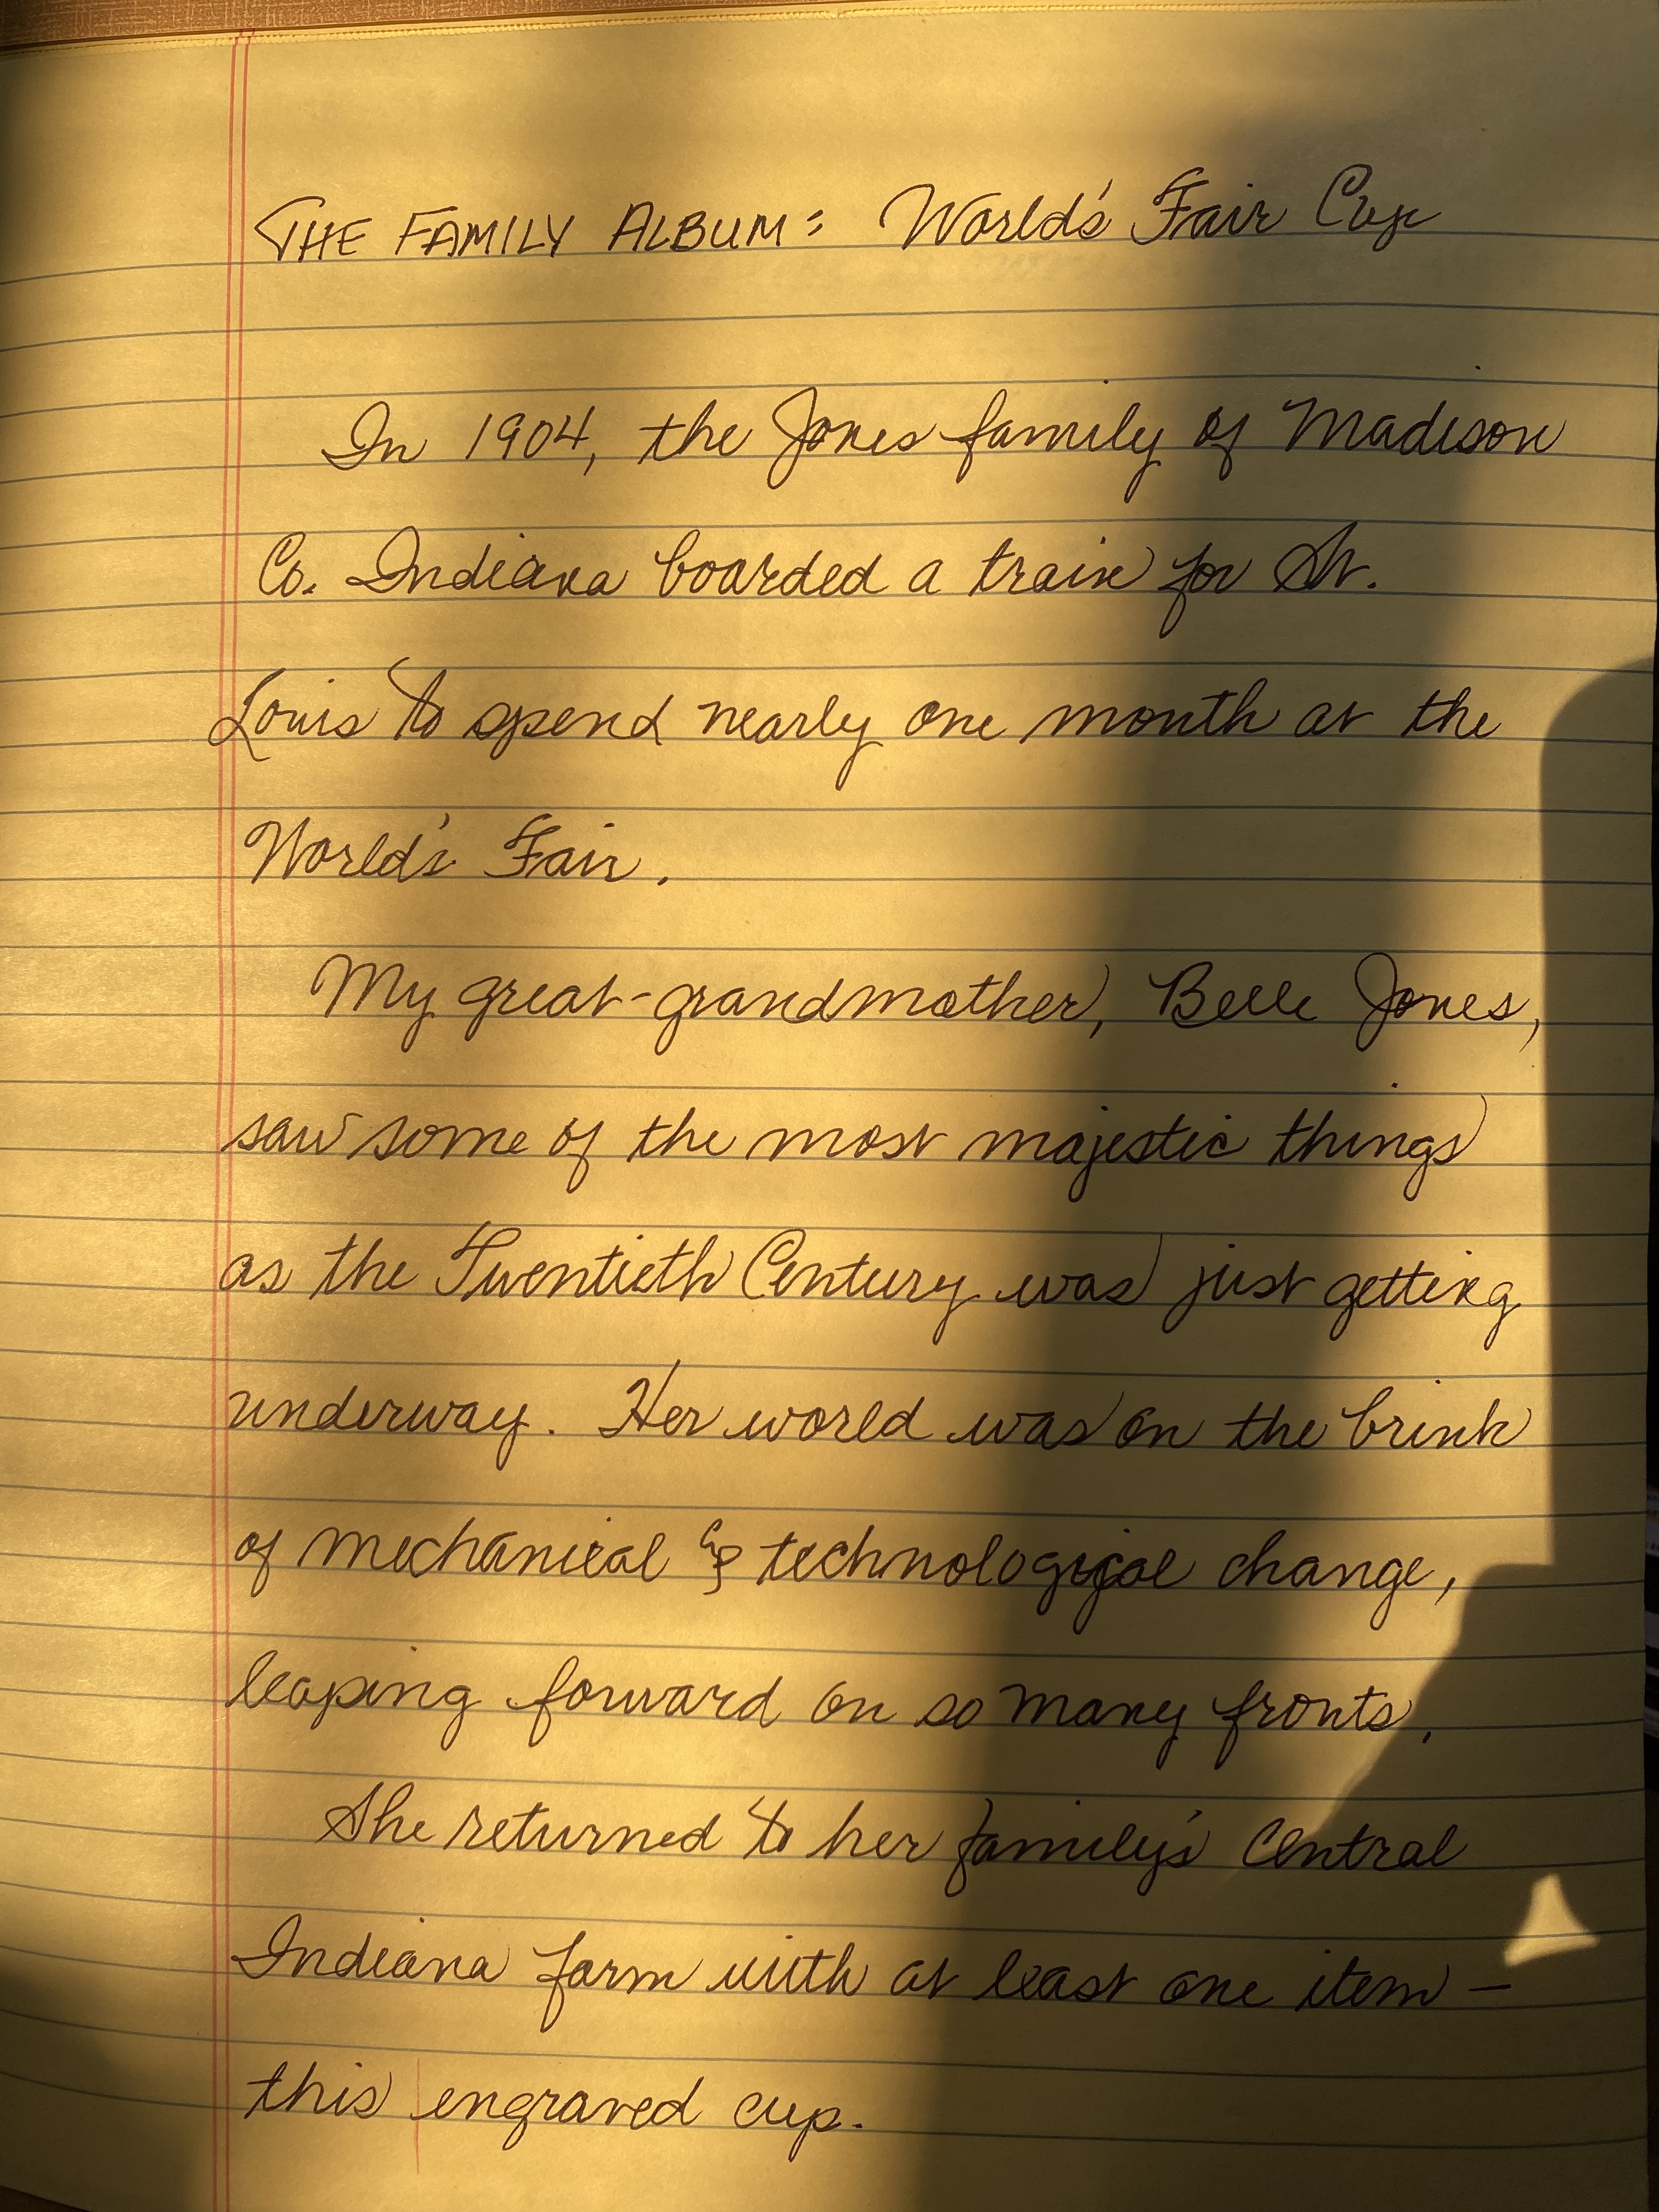 THE FAMILY ALBUM: World's Fair Cup
In 1904, the Jones family of Madison
Co. Indiana boarded a train for St.
Louis to spend nearly one month at the
World's Fair.
My great-grandmother, Belle Jones,
saw some of the most majestic things
as the Twentieth Century was just getting
underway. Her world was on the brink
of mechanical & technological change,
leaping forward on so many fronts.
She returned to her family's Central
Indiana farm with at least one item –
this engraved cup.